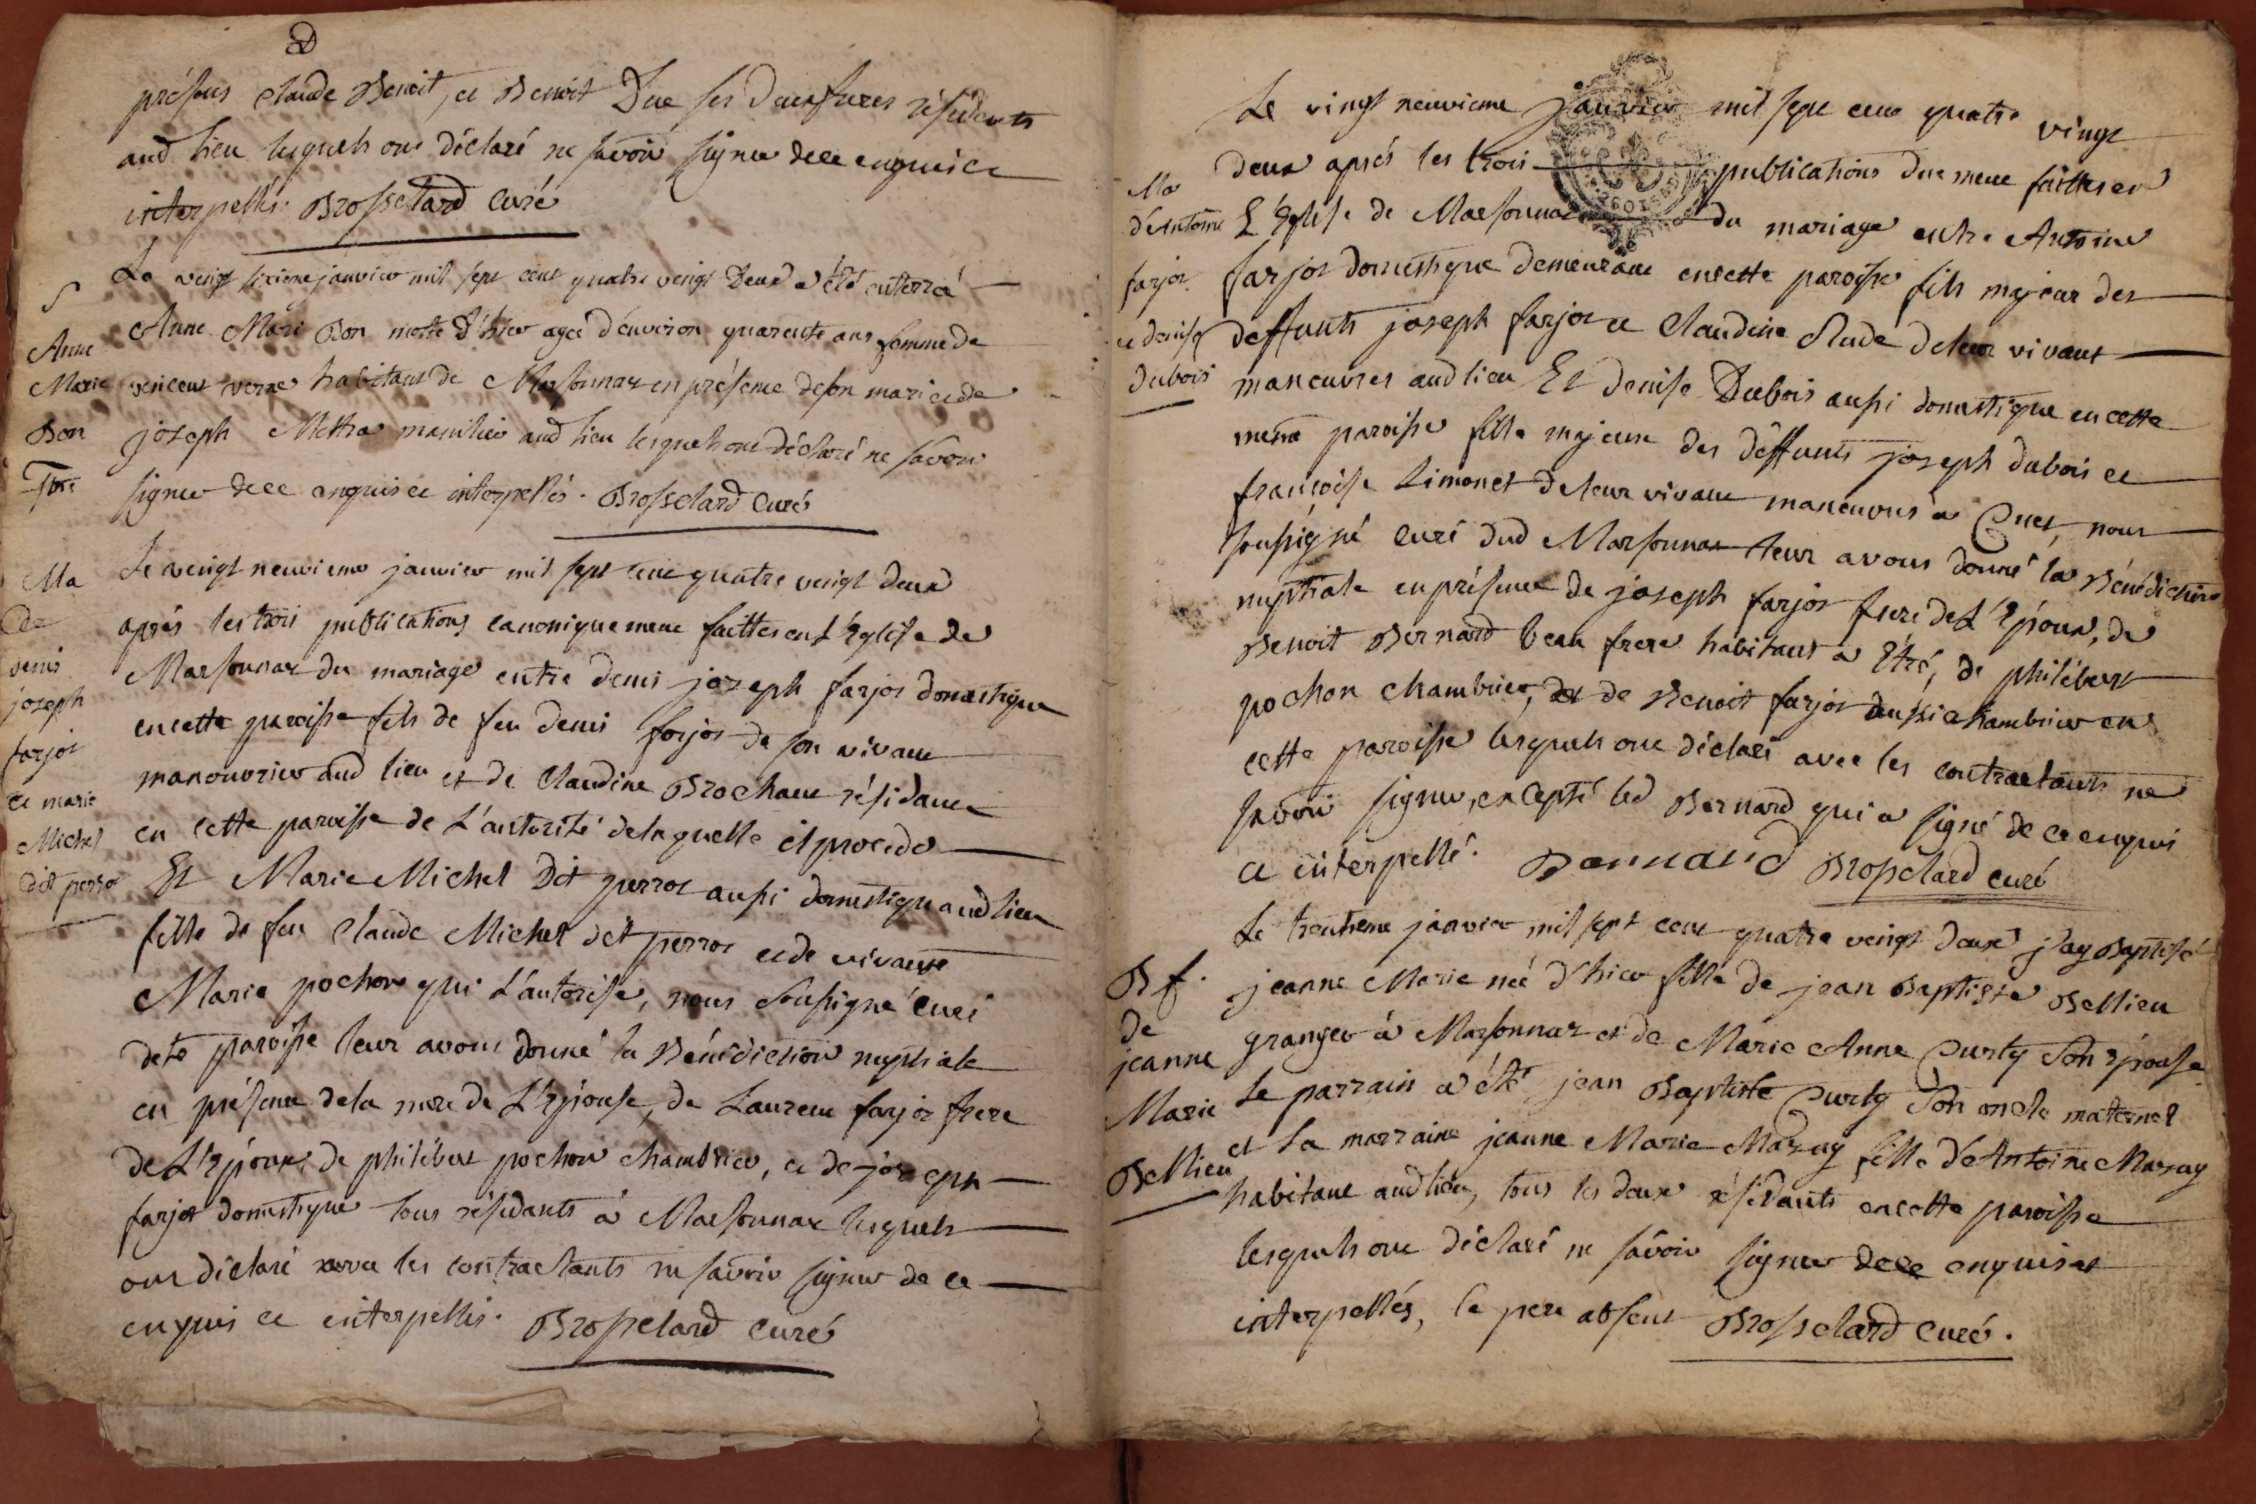 présens Claude Benoit, et Benoit Duc ses deux freres résidents
aud lieu lesquels ont déclaré ne savoir signer de ce enquis et
interpellés. Brosselard curé
Le vingt sixieme janvier mil sept cent quatre vingt deux a été enterré
Anne Marie Bon morte d'hier agée d'environ quarente ans femme de
vencent verne habitant de Marsonnaz en présence de son mari et de
joseph Mettra manilier aud lieu lesquels ont déclaré ne savoir
signer de ce enquis et interpellés. Brosselard curé
S
Anne
Marie
Bon
Le vengt neuvieme janvier mil sept cent quatre vengt deux
aprés les trois publications canoniquement faittes en L'Eglise de
Marsonnaz du mariage entre denis joseph farjot domestique
en cette paroisse fils de feu denis forjot de son vivant
manouvrier aud lieu et de Claudine Brochant résidante
en cette paroisse de L'autorité de laquelle il procede
Et Marie Michel Dit perrot aussi domestique aud lieu
fille de feu Claude Michel dit perrot et de vivante
Marie pochon qui L'autorise, nous soussigné curé
de lad paroisse leur avons donné la Bénédiction nuptiale
en présence de la mere de L'Epouse, de Laurent farjot frere
de L'Epoux, de philébert pochon chambrier, et de joseph
farjot domestique tous résidants à Marsonnaz lesquels
ont déclaré avec les contractants ne savoir signer de ce
enquis et interpellés. Brosselard curé
Ma
de
denis
joseph
farjot
et marie
Michel
dit perrot
Le vingt neuvieme janvier mil sept cent quatre vingt
deux aprés les trois publications duement faittes en
L'Eglise de Marsonnaz du mariage entre Antoine
farjot domestique demeurant en cette paroisse fils majeur des
deffunts joseph farjot et Claudine Rude de leur vivant
manouvres aud lieu Et denise Dubois aussi domestique en cette
meme paroisse fille majeure des deffunts joseph dubois et
francoise Limonet de leur vivant manouvres à Cuet, nous
soussigné curé dud Marsonnaz leur avons donné la Bénédiction
nuptiale en présence de joseph farjot frere de L'Epoux, de
Benoit Bernard beau frere habitant à Etré, de philébert
pochon chambrier, et de Benoit farjot aussi chambrier en
cette paroisse lesquels ont déclaré avec les contractants ne
savoir signer, excepté led Bernard qui a signé de ce enquis
et interpellé. Bernard Brosselard curé
Ma
d'Antoine
farjot
et denise
Dubois
Le trentieme janvier mil sept cent quatre vengt deux j'ay Baptisé
jeanne Marie née d'hier fille de jean Baptiste Bellieu
granger à Marsonnaz et de Marie Anne Curty Son Epouse
Le parrain a été jean Baptiste Curty Son oncle maternel
et La marraine jeanne Marie Mazuy fille d'Antoine Mazuy
habitant aud lieu, tous les deux résidants en cette paroisse
lesquels ont déclaré ne savoir signer de ce enquis et
interpellés, le pere absent Brosselard curé.
B f.
de
jeanne
Marie
Bellieu